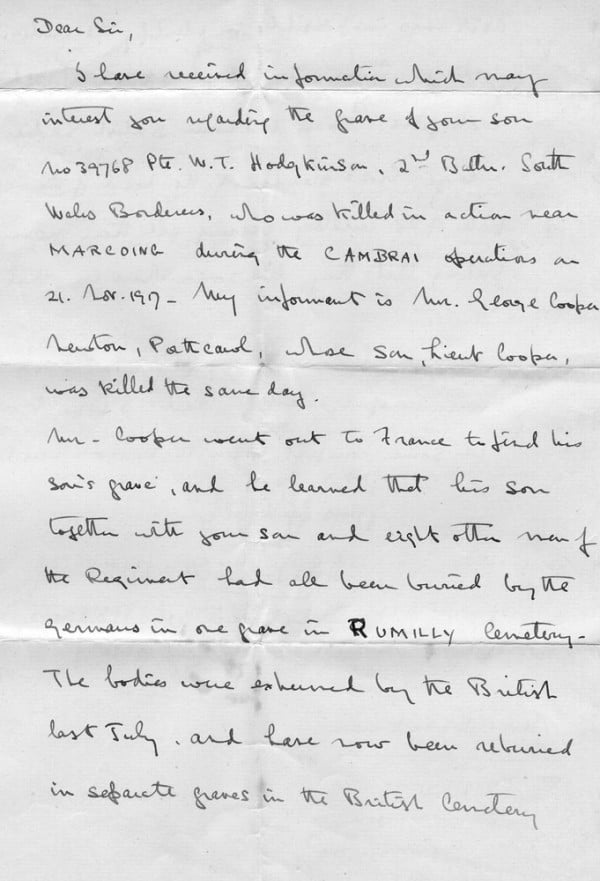 Dear Sir,
I have received information which may
interest you regarding the grave of your son
No 39768 Pte. W.T. Hodgkinson, 2nd Battn. South
Wales Borderers, who was killed in action near
MARCOING during the CAMBRAI operations on
21. Nov. 1917 – My informant is Mr. George Cooper
Newton, Porthcawl, whose son, Lieut Cooper,
was killed the same day.
Mr – Cooper went out to France to find his
son's grave, and he learned that his son
together with your son and eight other men of
the Regiment had all been buried by the
Germans in one grave in RUMILLY Cemetery –
The bodies were exhumed by the British
last July. and have now been reburied
in separate graves in the British Cemetery